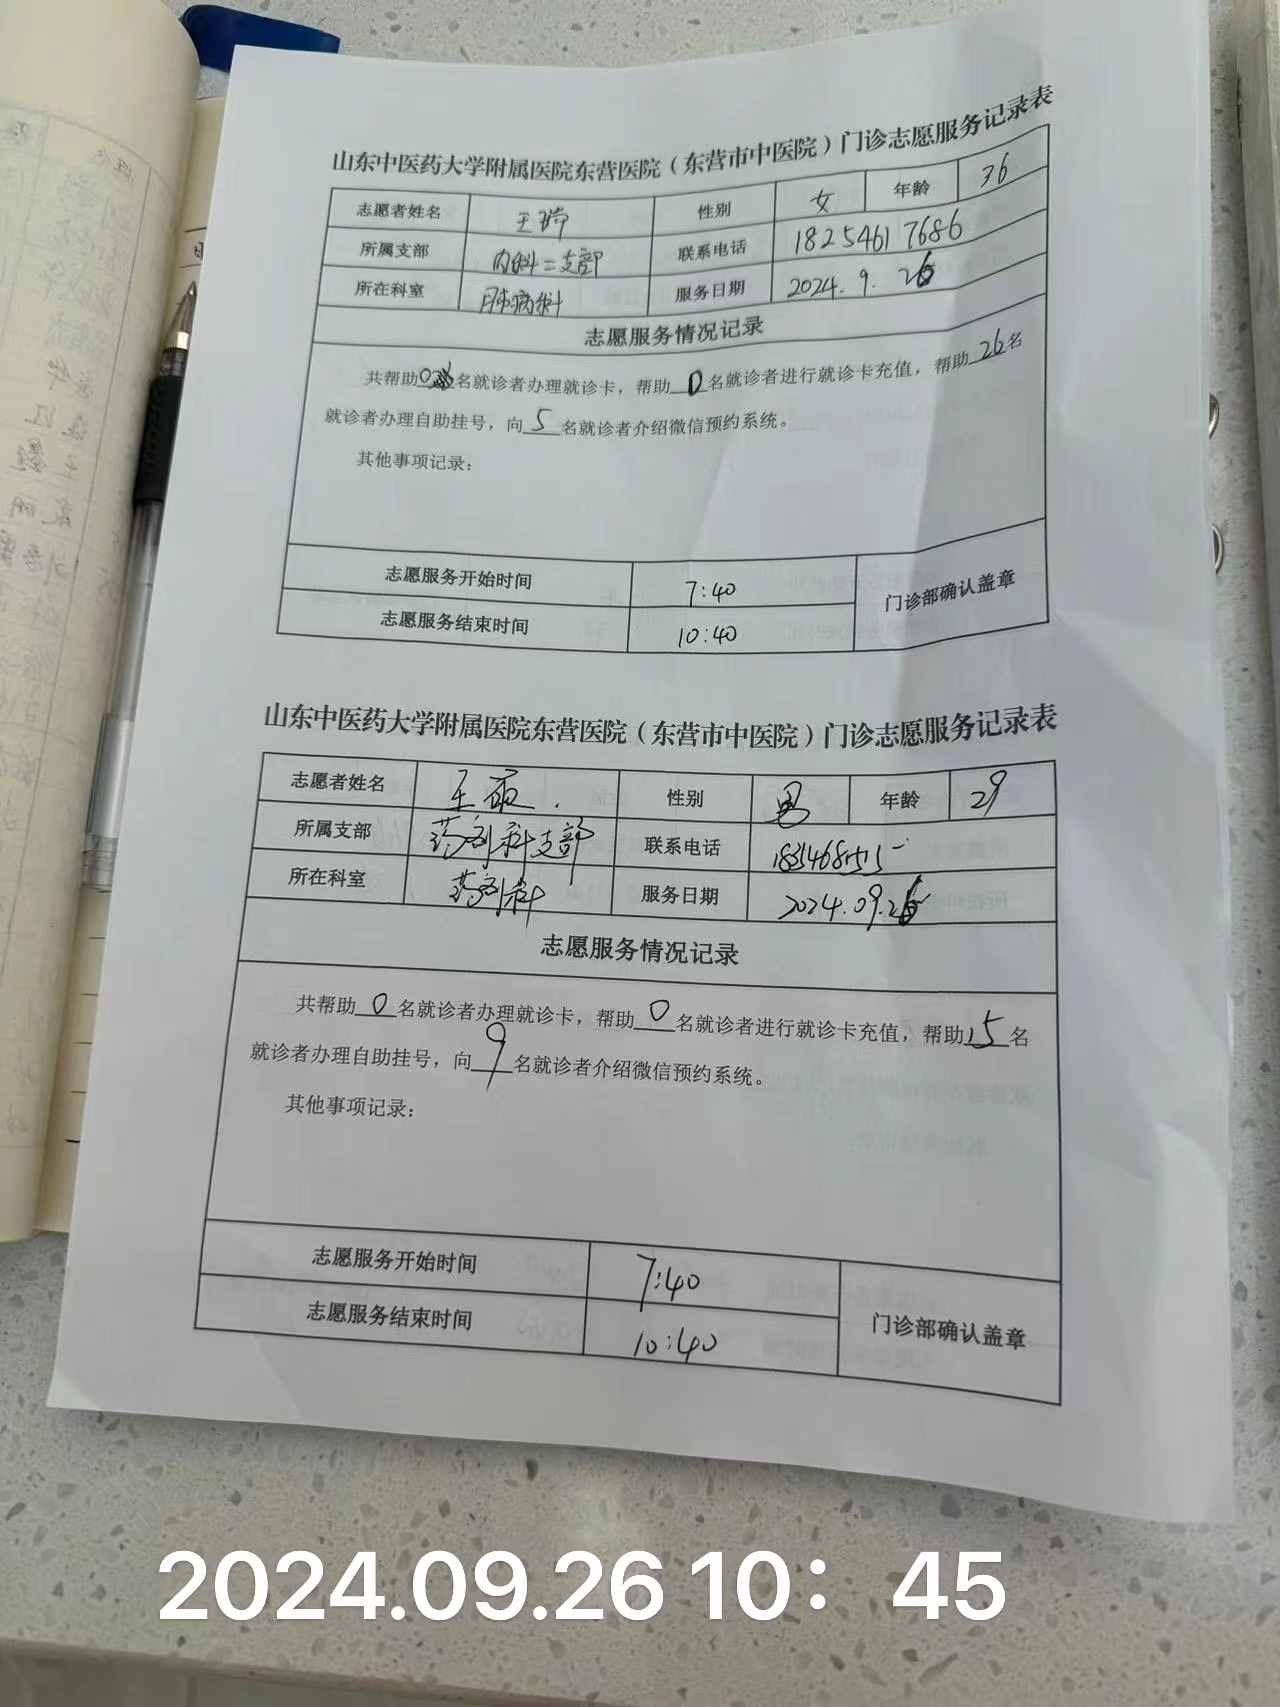 山东中医药大学附属医院东营医院（东营市中医院）门诊志愿服务记录表
志愿者姓名 王 性别 女 年龄 36
所属支部 内科二支部 联系电话 18254617686
所在科室 肺病科 服务日期 2024.9.26
志愿服务情况记录
共帮助0名就诊者办理就诊卡，帮助0名就诊者进行就诊卡充值，帮助26名
就诊者办理自助挂号，向5名就诊者介绍微信预约系统。
其他事项记录：
志愿服务开始时间 7:40
志愿服务结束时间 10:40
门诊部确认盖章
山东中医药大学附属医院东营医院（东营市中医院）门诊志愿服务记录表
志愿者姓名 王 性别 男 年龄 29
所属支部 药剂科支部 联系电话
所在科室 药剂科 服务日期 2024.09.26
志愿服务情况记录
共帮助0名就诊者办理就诊卡，帮助0名就诊者进行就诊卡充值，帮助15名
就诊者办理自助挂号，向9名就诊者介绍微信预约系统。
其他事项记录：
志愿服务开始时间 7:40
志愿服务结束时间 10:40
门诊部确认盖章
2024.09.26 10：45